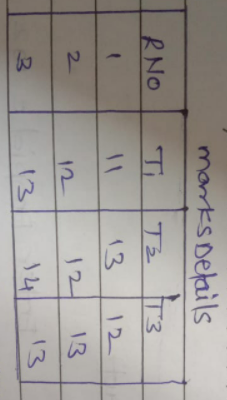 marks Details
RNO T1 T2 T3
1 11 13 12
2 12 12 13
3 13 14 13